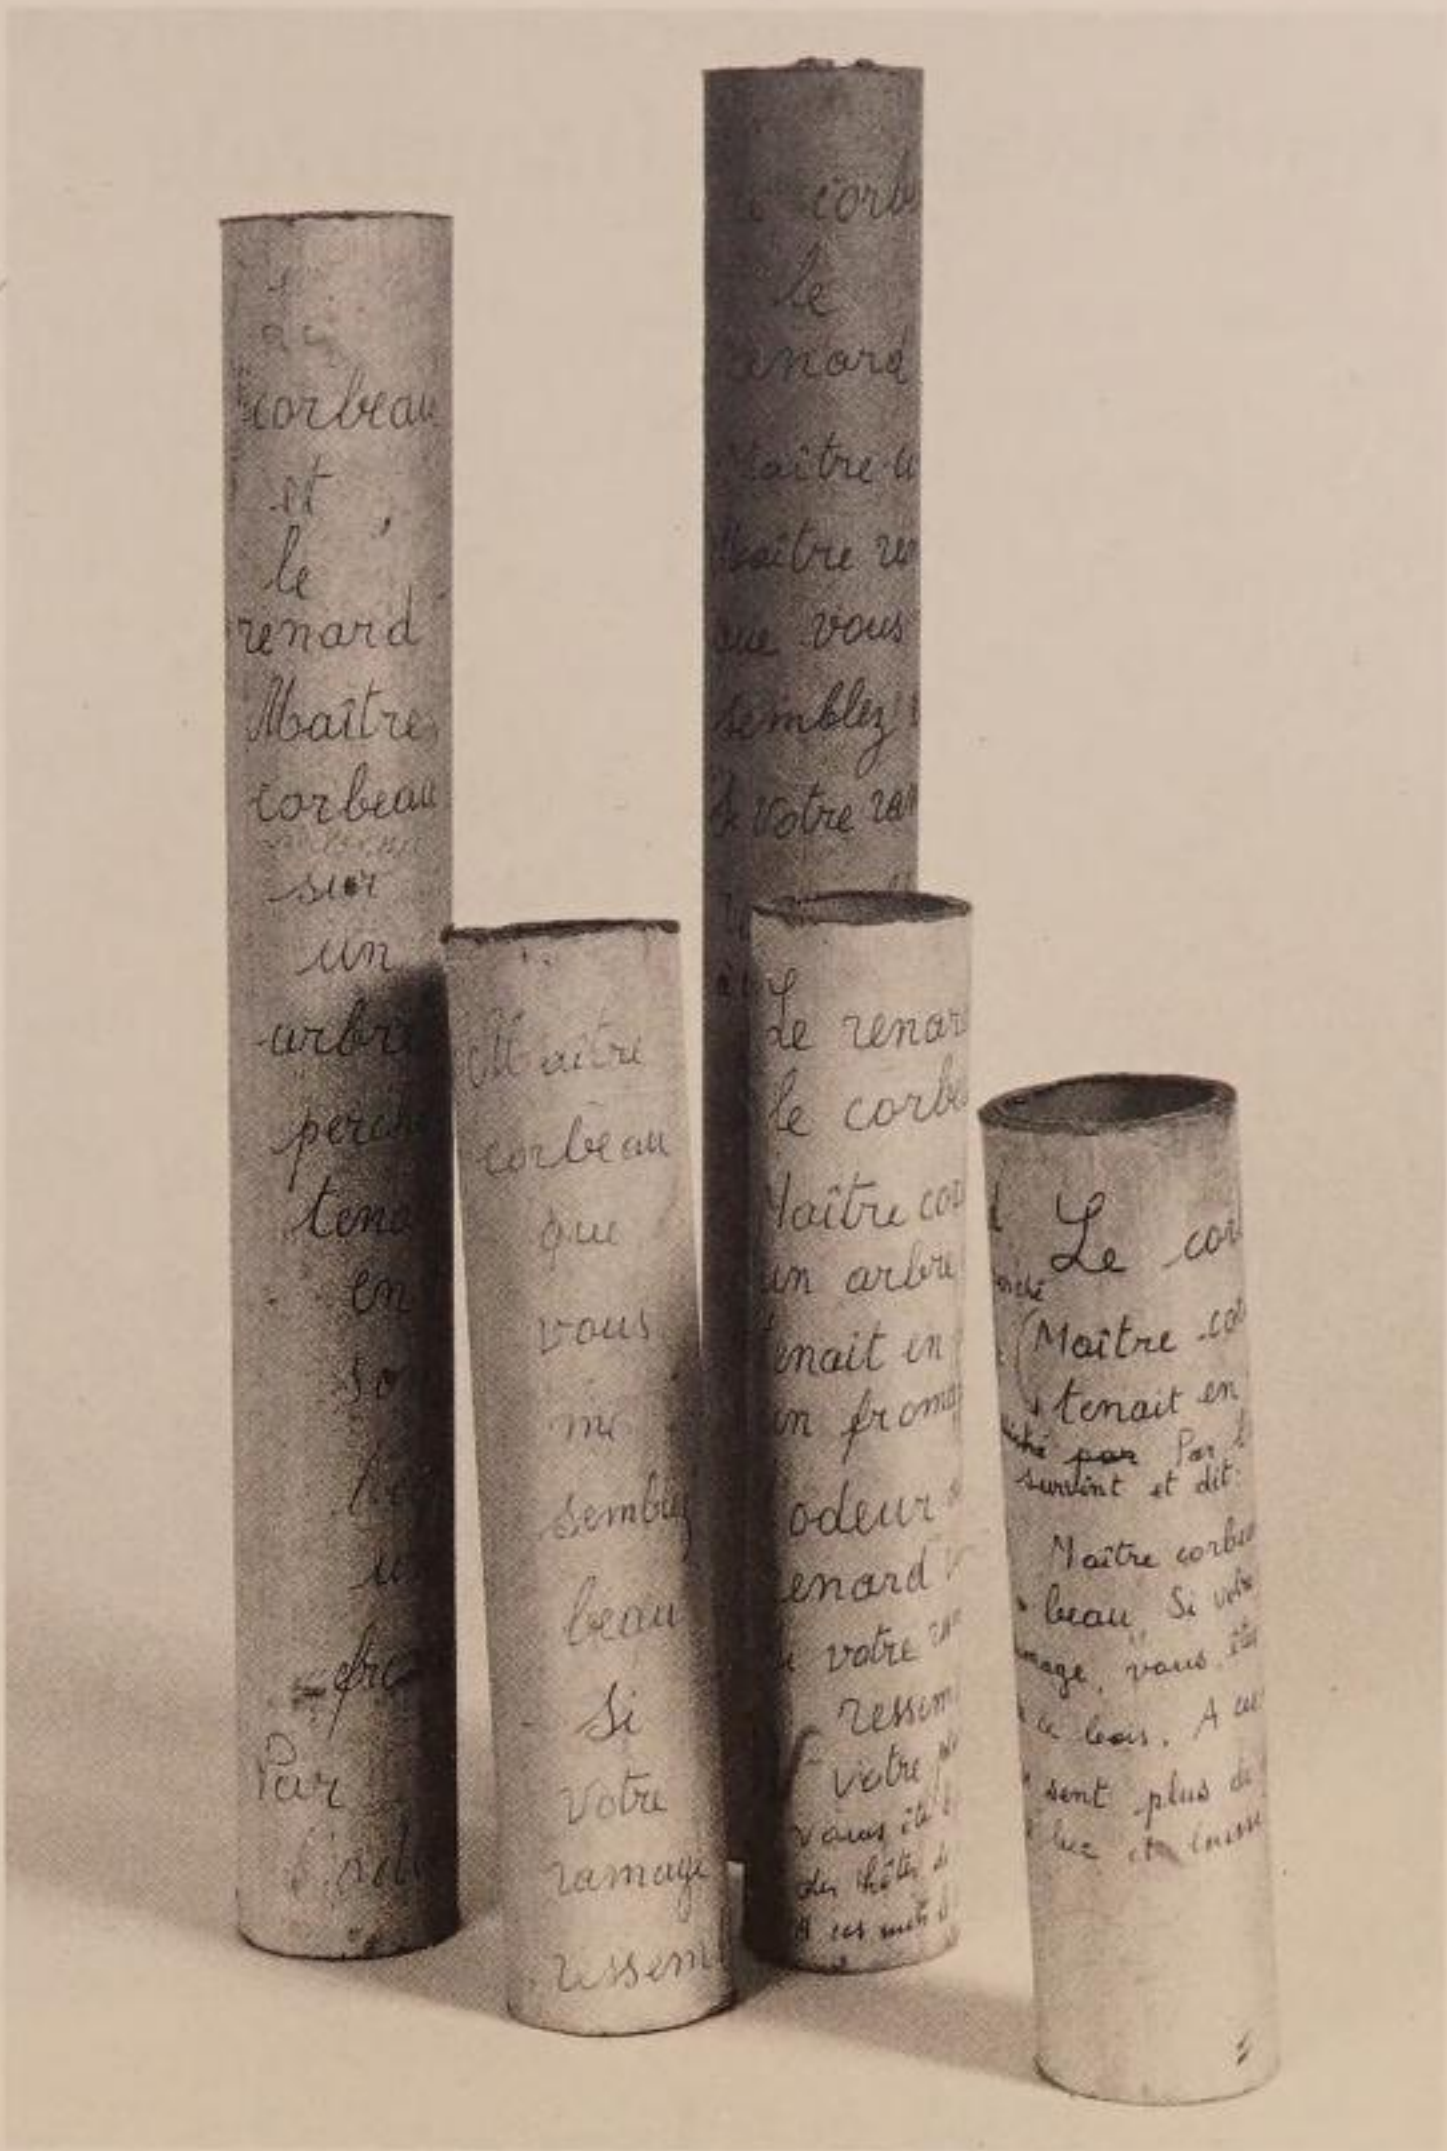 corbeau
et
le
renard
Maître
corbeau
sur
un
arbre
perché
tena
en
so
fro
Par
Maître
corbeau
que
vous
me
semblez
beau
Si
Votre
ramage
ressem
corb
Le
enard
aître
Maître ren
que vous
semblez
Votre ram
Le renar
le corbe
Maître cor
un arbre
enait en
un froma
odeur
enard
votre
ressem
votre
Vous ête
des hôtes de
A ces mots
Le cor
Maître cor
tenait en
par Par
survint et dit:
Maître corbea
beau Si votre
mage, vous ête
ce bois. A ces
sent plus de
bec et laisse